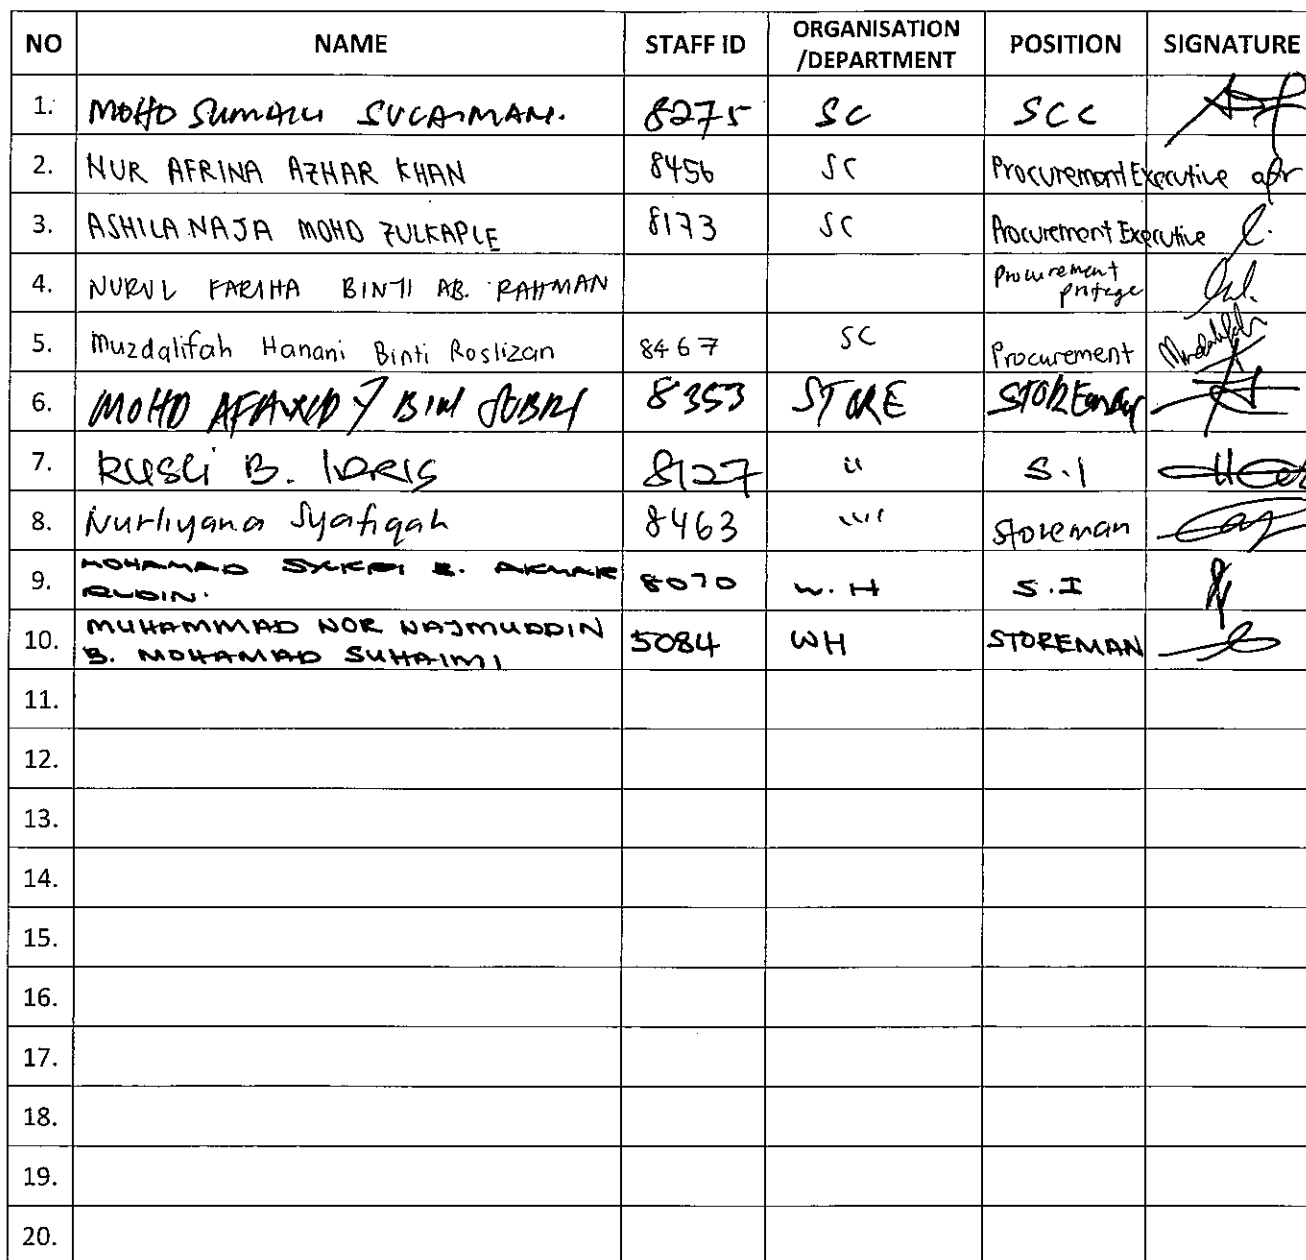 NO NAME STAFF ID ORGANISATION /DEPARTMENT POSITION SIGNATURE
1. MOHD 8275 SC SCC
2. NUR AFRINA AZHAR KHAN 8456 SC Procurement Executive afr
3. ASHILA NAJA MOHD ZULKAPLE 8173 SC Procurement Executive
4. NURUL FARIHA BINTI AB. RAHMAN Procurement protege
5. Muzdalifah Hanani Binti Roslizan 8467 SC Procurement Muzdalifah
6. MOHD BIN 8353 STORE
7. RUSLI B. IDRIS 8127 " S.I
8. Nurliyana Syafiqah 8463 Storeman
9. MOHAMAD B. AKMAR
RUDIN. 8070 W.H S.I
10. MUHAMMAD NOR NAJMUDDIN
B. MOHAMAD SUHAIMI 5084 WH STOREMAN
11.
12.
13.
14.
15.
16.
17.
18.
19.
20.